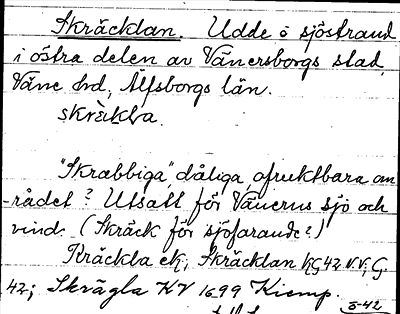 Skräcklan. Udde o sjöstrand
i östra delen av Vänersborgs stad,
Väne hd, Älfsborgs län.
skräkla.
"Skrabbiga", dåliga, ofruktbara om
-rådet? Utsatt för Vänerns sjö och
vind. (Skräck för sjöfarande?)
Kräckla ek, Skräcklan KG42 VV; G.
42; Skrägla KV 1699 Kiemp.
3-42